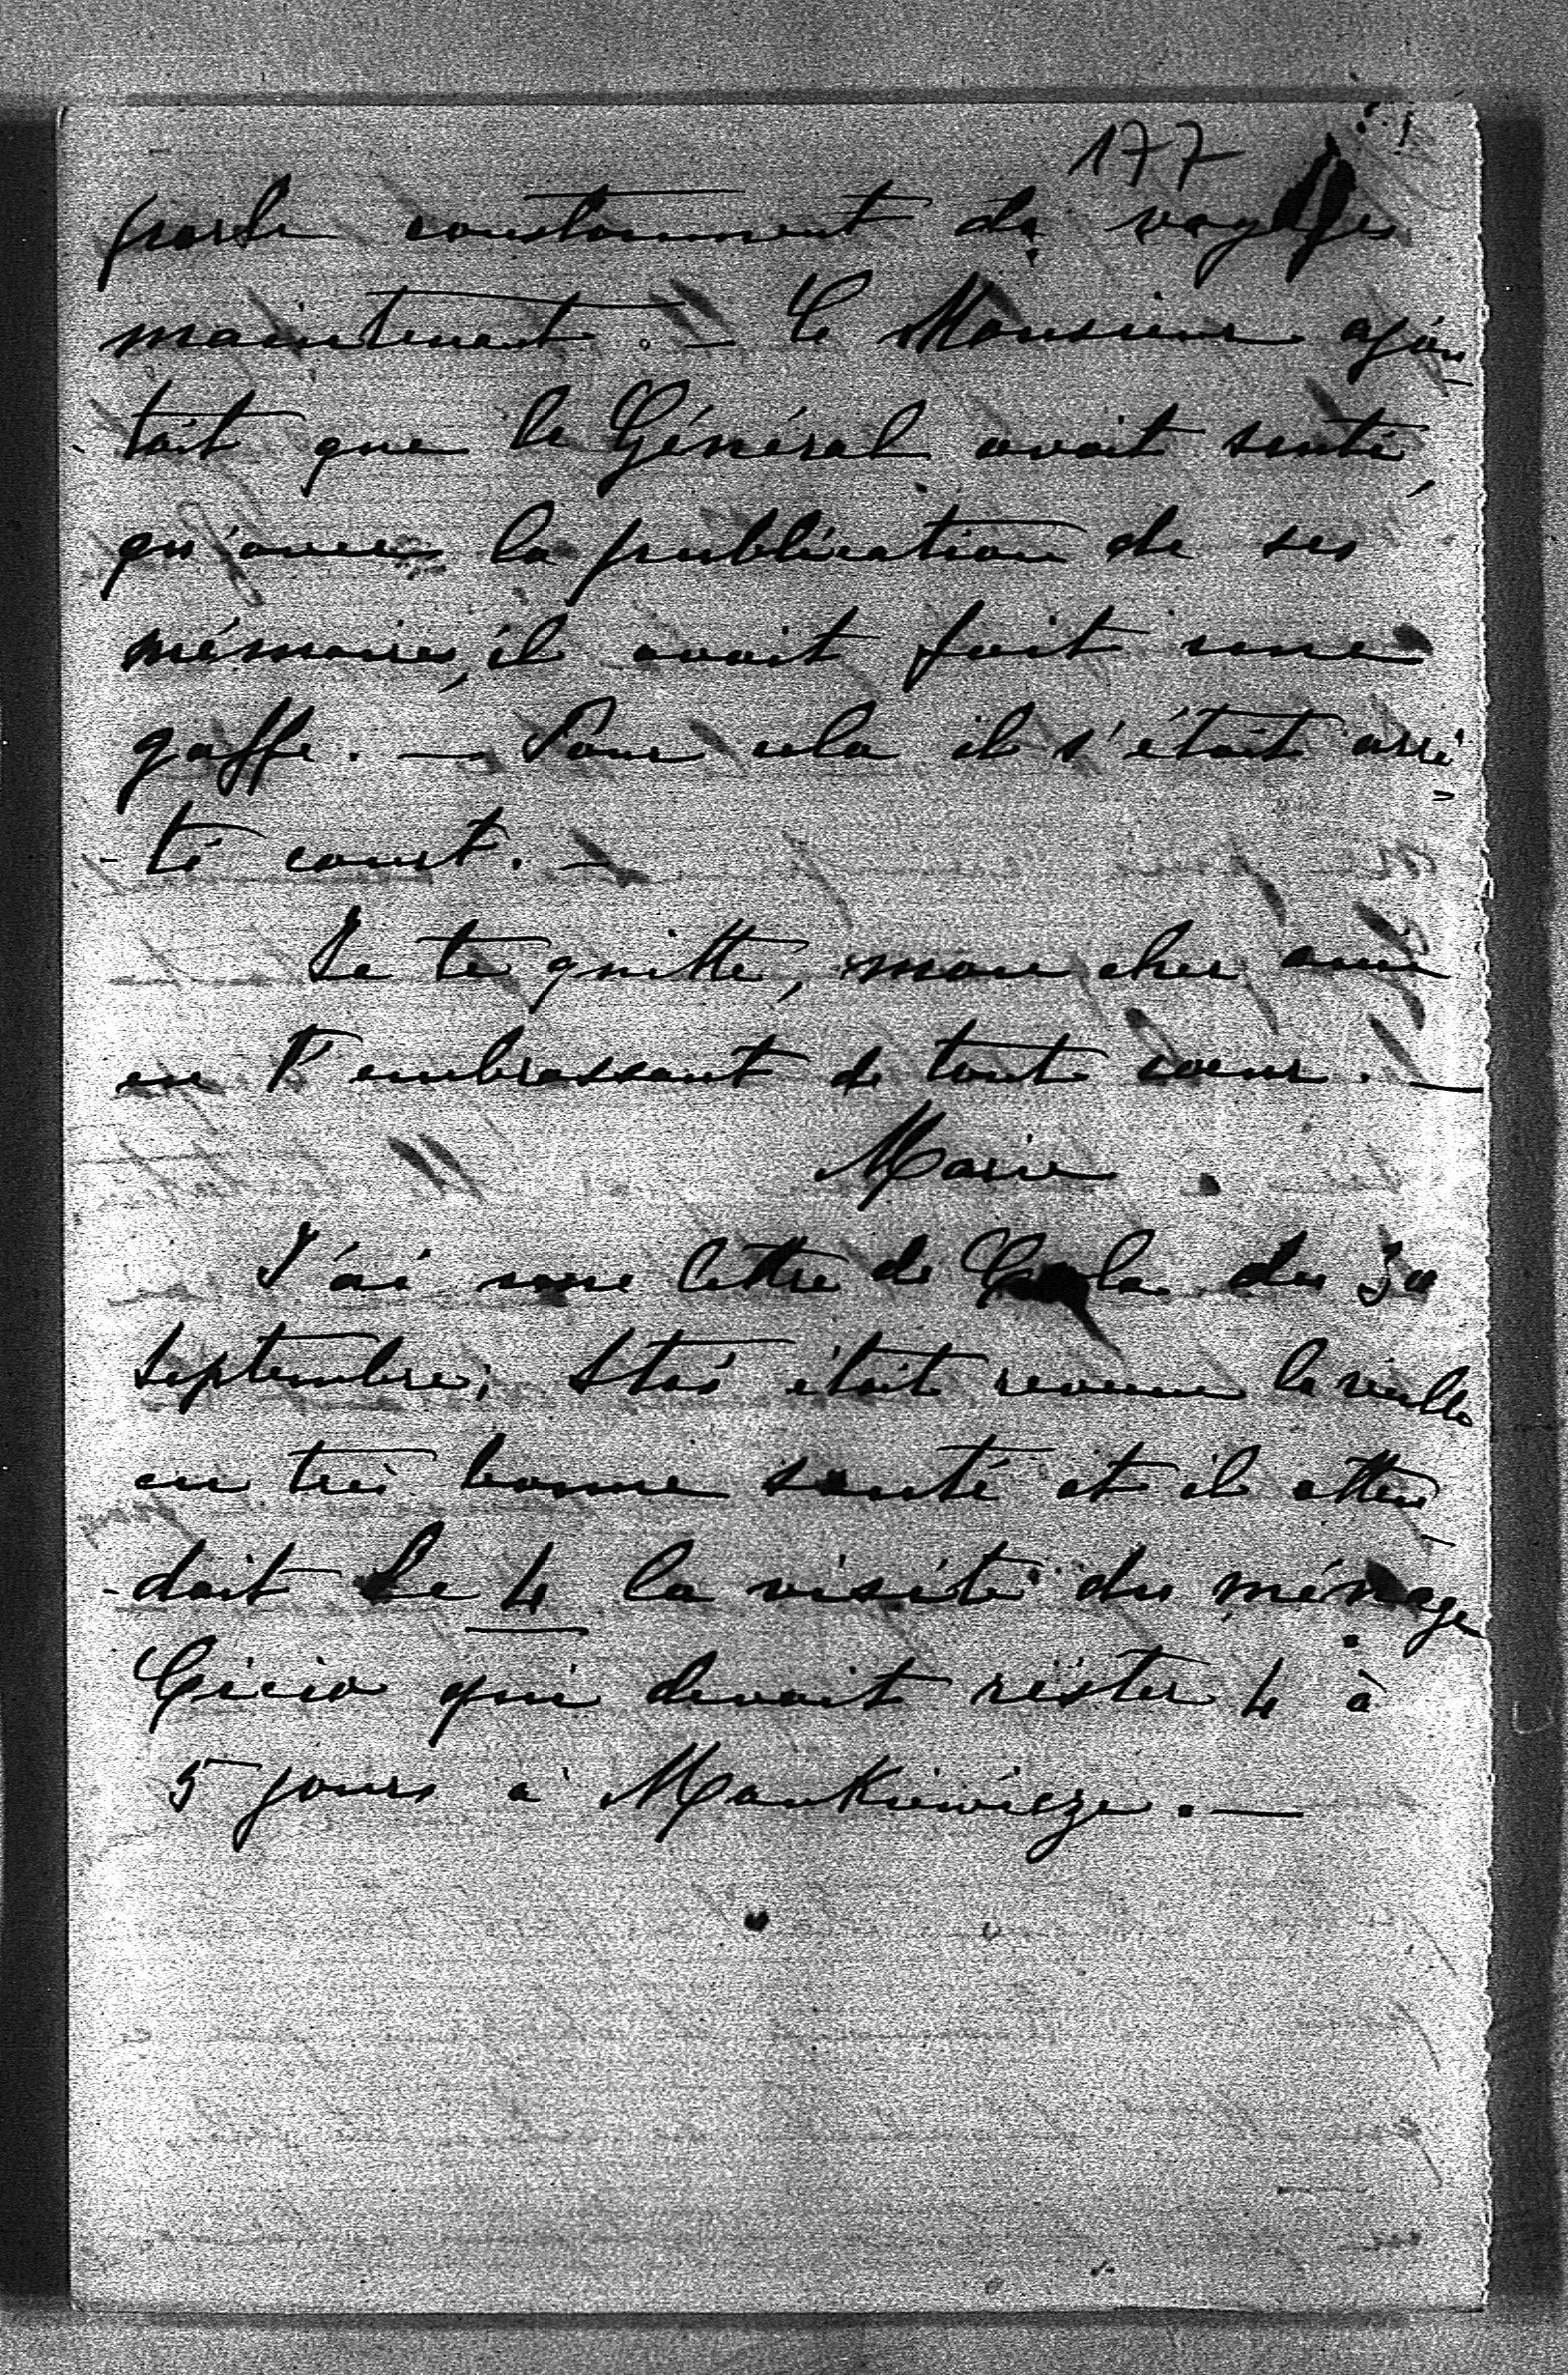 177
parle constamment de voyages
maintenant. — Ce Monsieur ajou-
-tait que le Général avait senti,
qu'avec la publication de ses
mémoires, il avait fait une
gaffe. — Pour cela il s'était arrê=
-té court. —
Je te quitte, mon cher ami
en t'embrassant de tout coeur. —
Marie
J'ai une lettre de du 30
septembre; Stas était revenu la veille
en très bonne santé et il atten-
-dait le 4 la visite du ménage
Gicio qui devait rester 4 à
5 jours à Mankiewicze. —